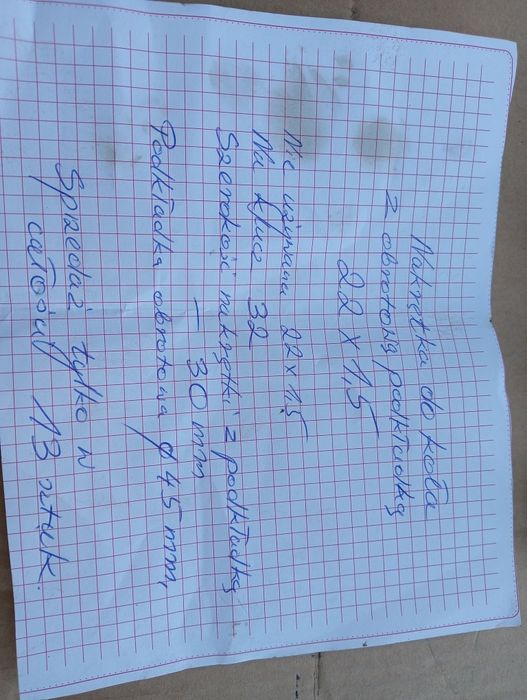 Nakrętka do koła
z obrotową podkładką
22 x 1,5
Nie używana 22 x 1,5
Na klucz 32
Szerokość nakrętki z podkładką
– 30 mm
Podkładka obrotowa ø 45 mm,
Sprzedaż tylko w
całości 13 sztuk.